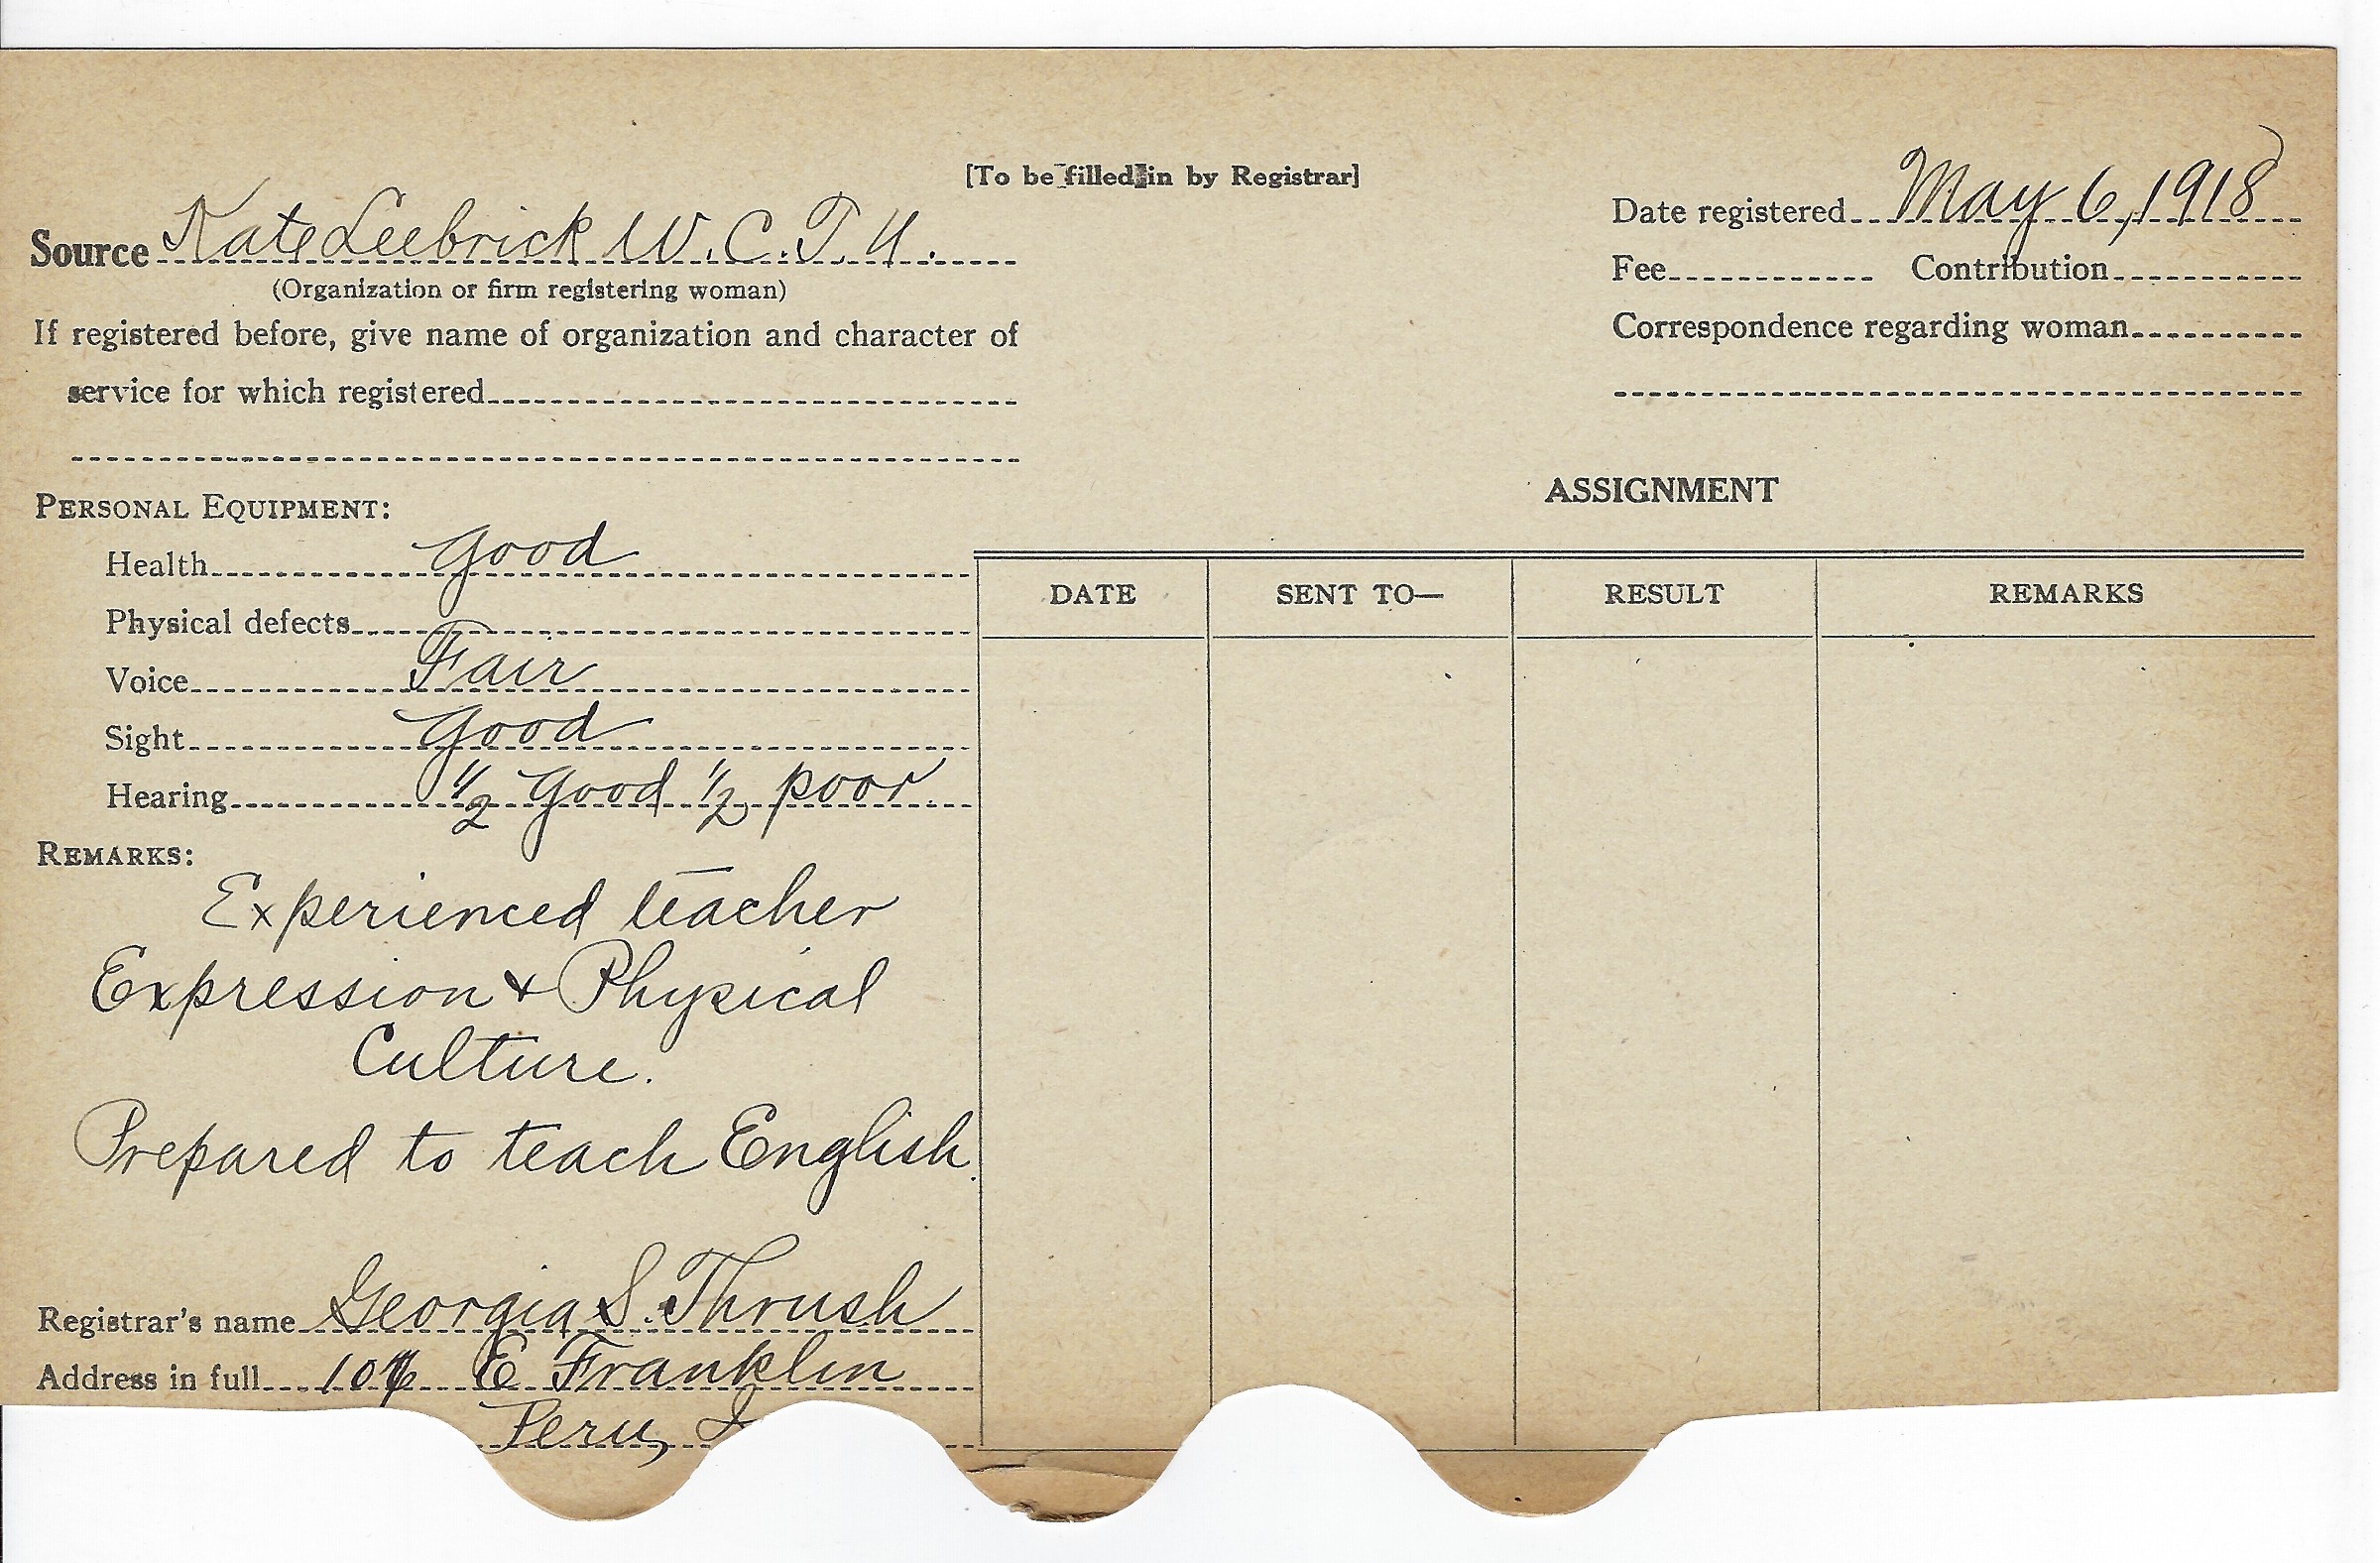 [To be filled in by Registrar]
Source Kate Leebrick W.C.T.U.
(Organization or firm registering woman)
If registered before, give name of organization and character of
service for which registered
Date registered May 6, 1918
Fee Contribution
Correspondence regarding woman
PERSONAL EQUIPMENT:
Health good
Physical defects
Voice Fair
Sight good
Hearing 1/2 good 1/2 poor
REMARKS:
Experienced teacher
Expression + Physical
Culture.
Prepared to teach English.
Registrar's name Georgia S. Thrush
Address in full E Franklin
Peru,
ASSIGNMENT
DATE SENT TO— RESULT REMARKS